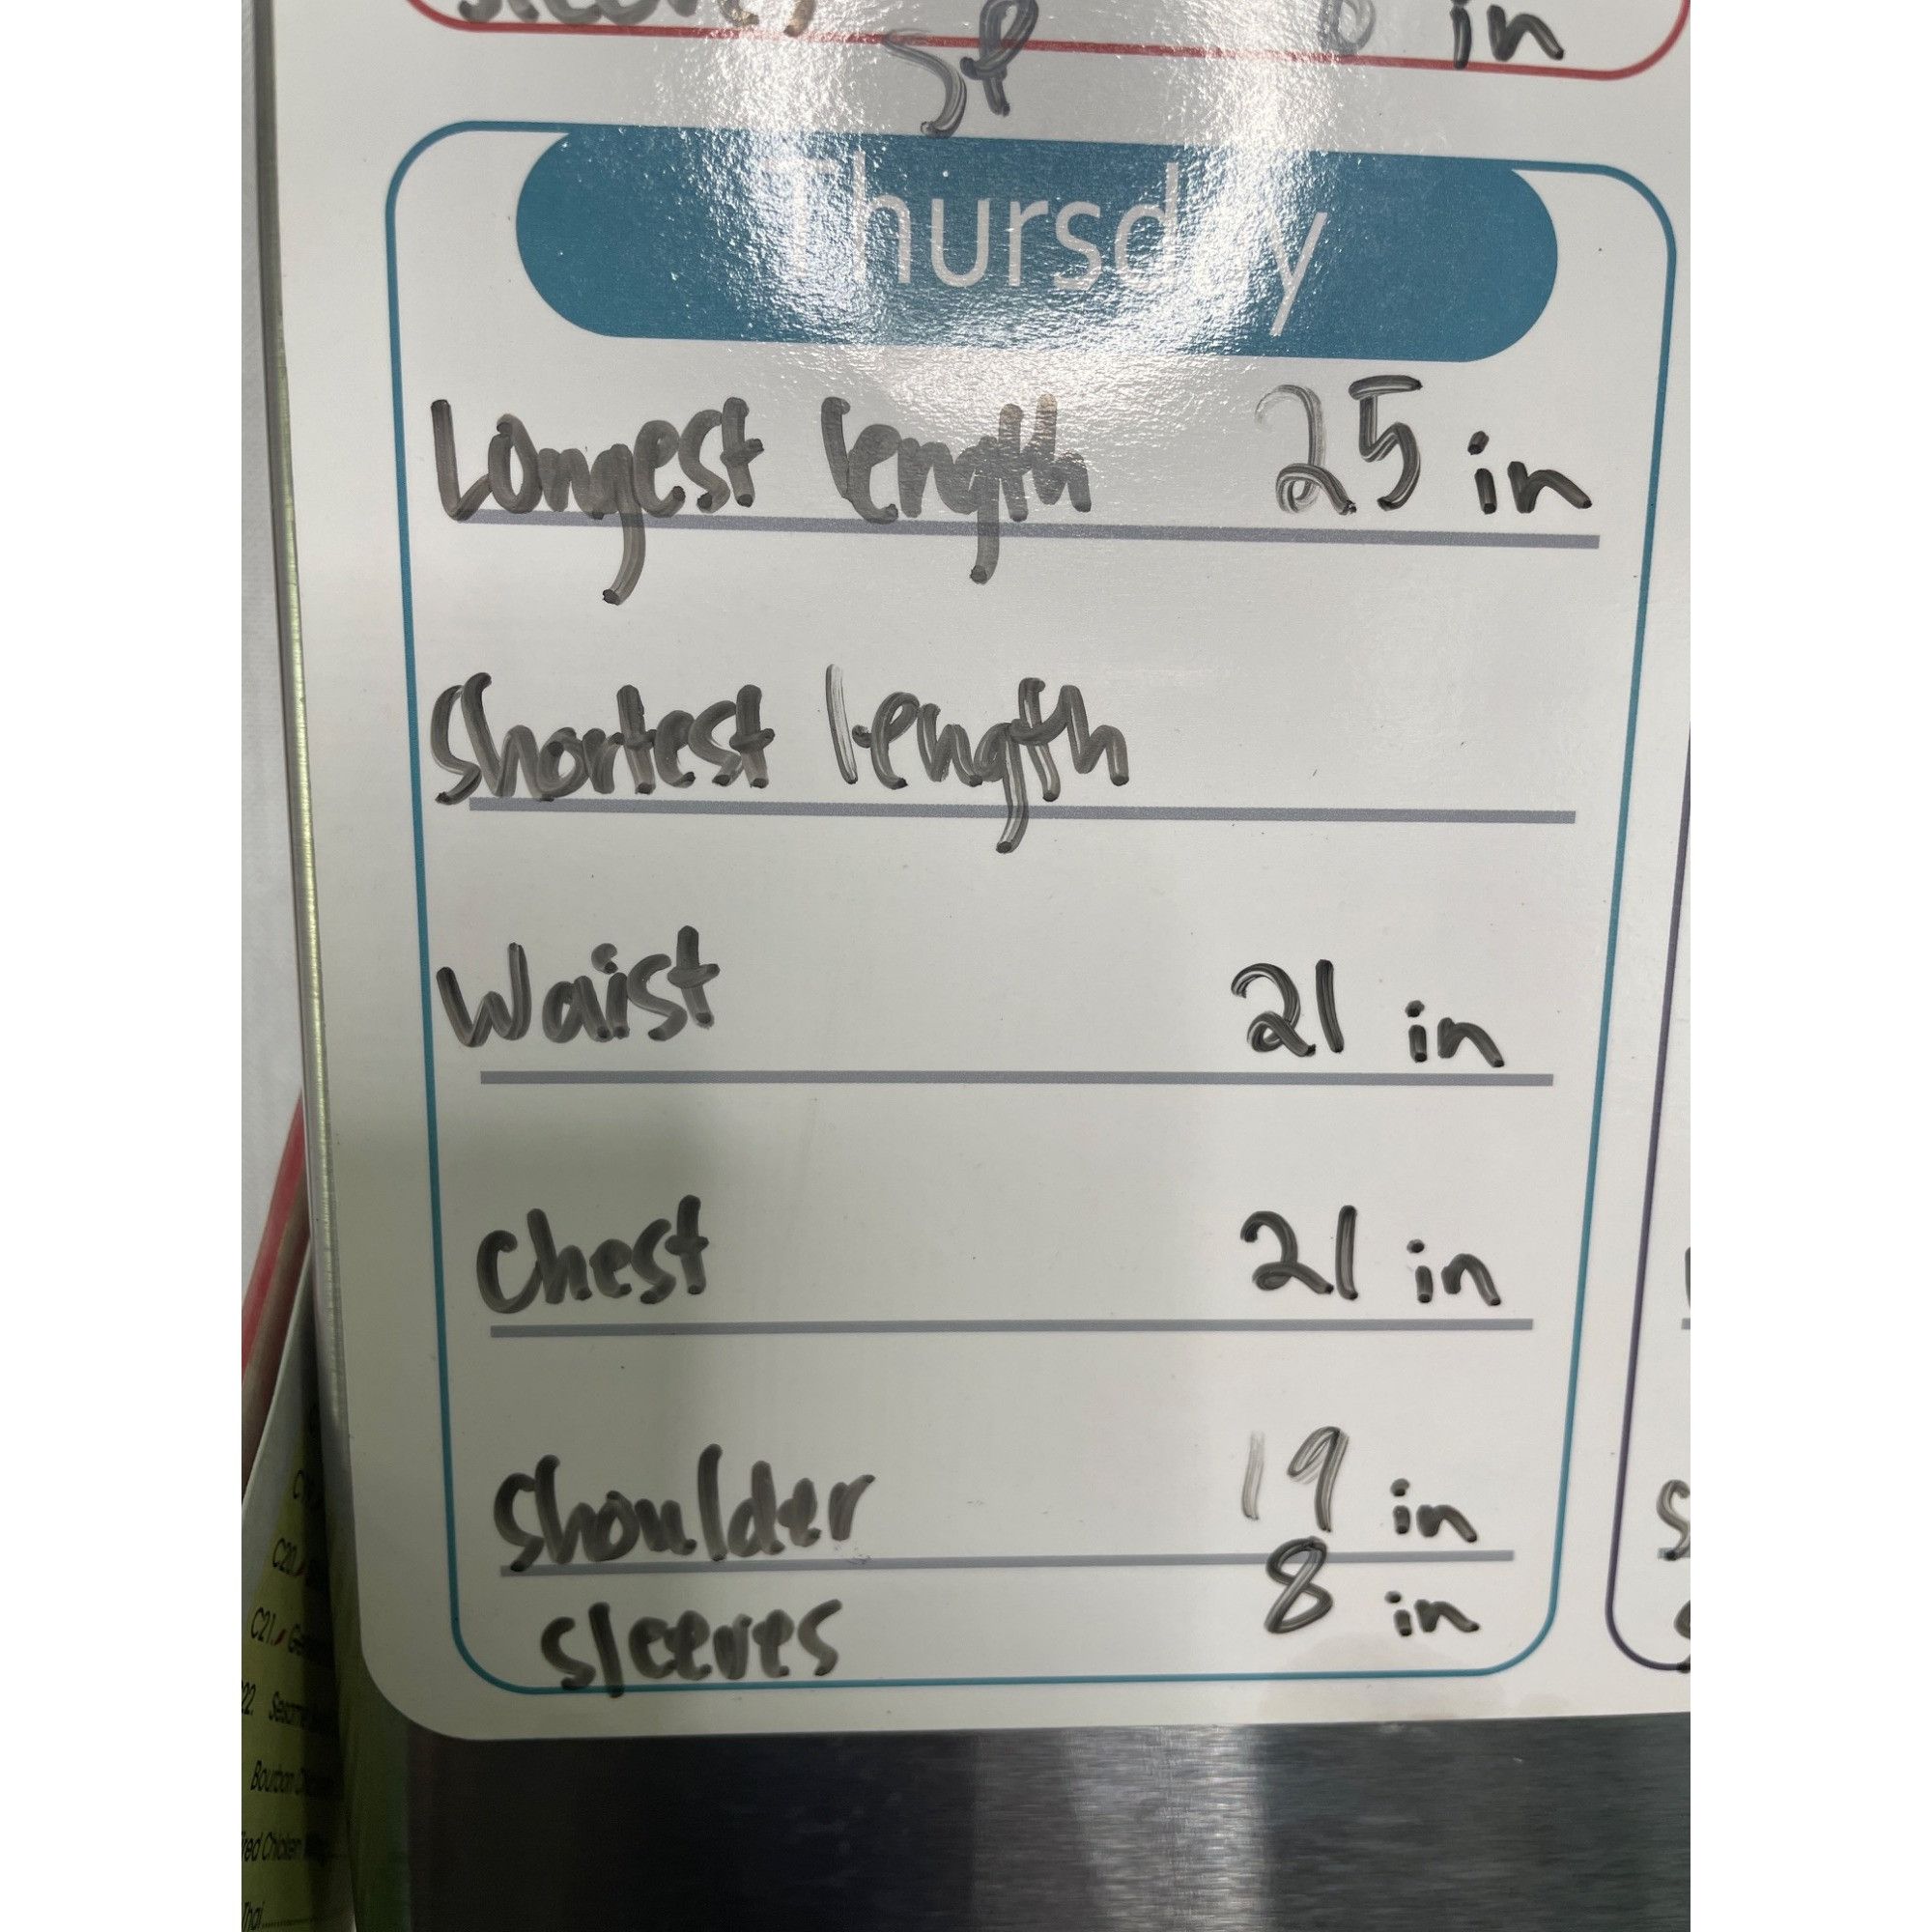 sleeves 8 in
SP
Thursday
Longest length 25 in
Shortest length
Waist 21 in
Chest 21 in
Shoulder 19 in
sleeves 8 in
C20.
C21.
22. Sesame
Bourbon
Chicken
Thai